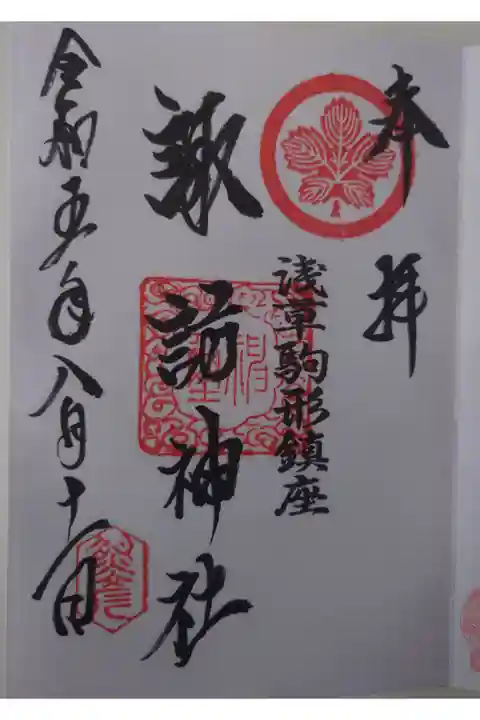 奉拝
浅草駒形鎮座
諏訪神社
令和五年八月十一日